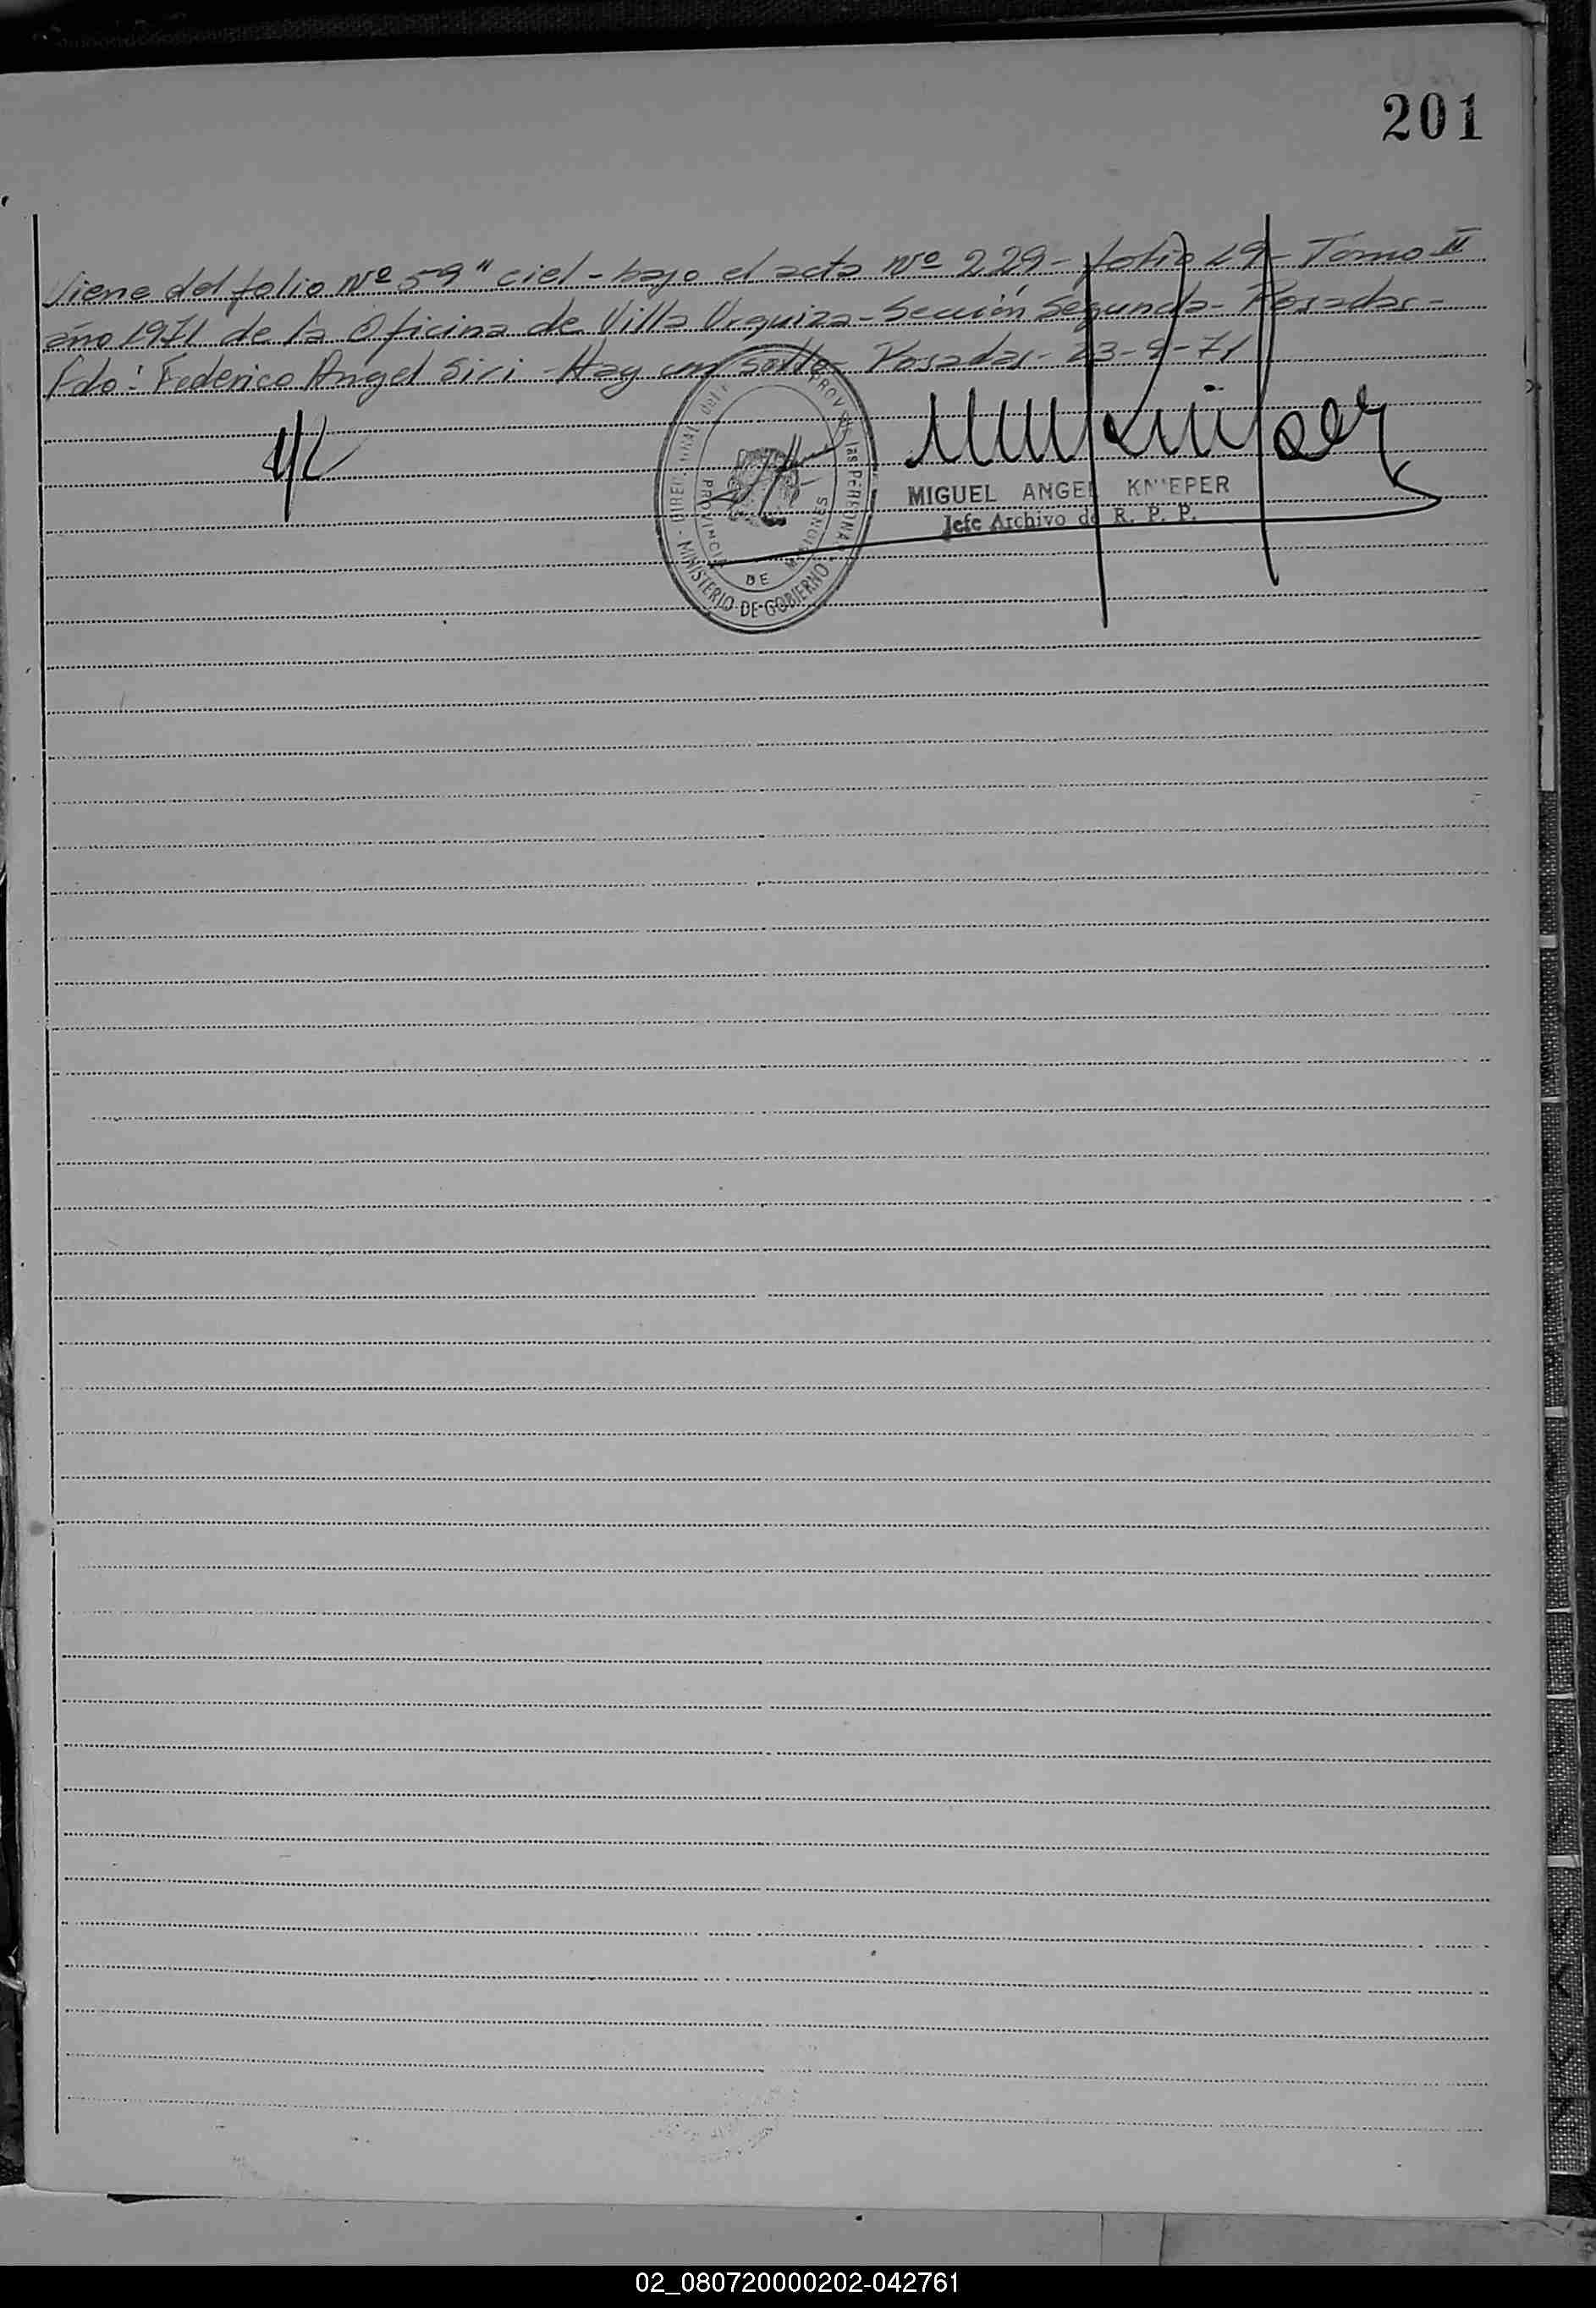 201
Viene del folio Nº 59" ciel - bajo el acta Nº 229 - folio 29 - Tomo II
año 1971 de la Oficina de Villa Urquiza - Sección Segunda - Posadas -
Fdo: Federico Angel Siri - Hay un sello - Posadas - 23-9-71
MIGUEL ANGEL KNIEPER
Jefe Archivo de R. P. P.
PROV. de las PERSONAS
MINISTERIO DE GOBIERNO
PROVINCIA DE MISIONES
02_080720000202-042761